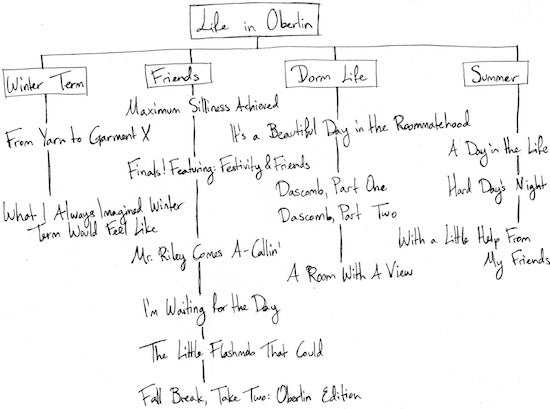 Life in Oberlin
Winter Term
From Yarn to Garment X
What I Always Imagined Winter
Term Would Feel Like
Friends
Maximum Silliness Achieved
Finals! Featuring: Festivity & Friends
Mr. Riley Comes A-Callin'
I'm Waiting for the Day
The Little Flashmob That Could
Fall Break, Take Two: Oberlin Edition
Dorm Life
It's a Beautiful Day in the Roommatehood
Dascomb, Part One
Dascomb, Part Two
A Room With A View
Summer
A Day in the Life
Hard Day's Night
With a Little Help From
My Friends